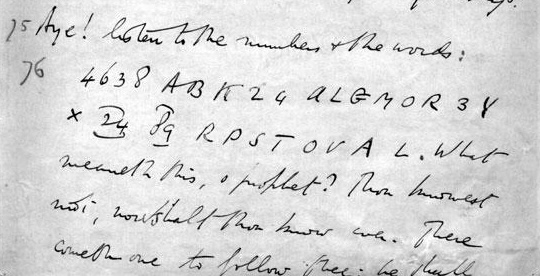 75 Aye! listen to the numbers & the words:
76
4 6 3 8 A B K 2 4 a L G M O R 3 Y
x 24 89 R P S T O V A L. What
meaneth this, o prophet? Thou knowest
not; nor shalt thou know ever. There
cometh one to follow thee: he shall